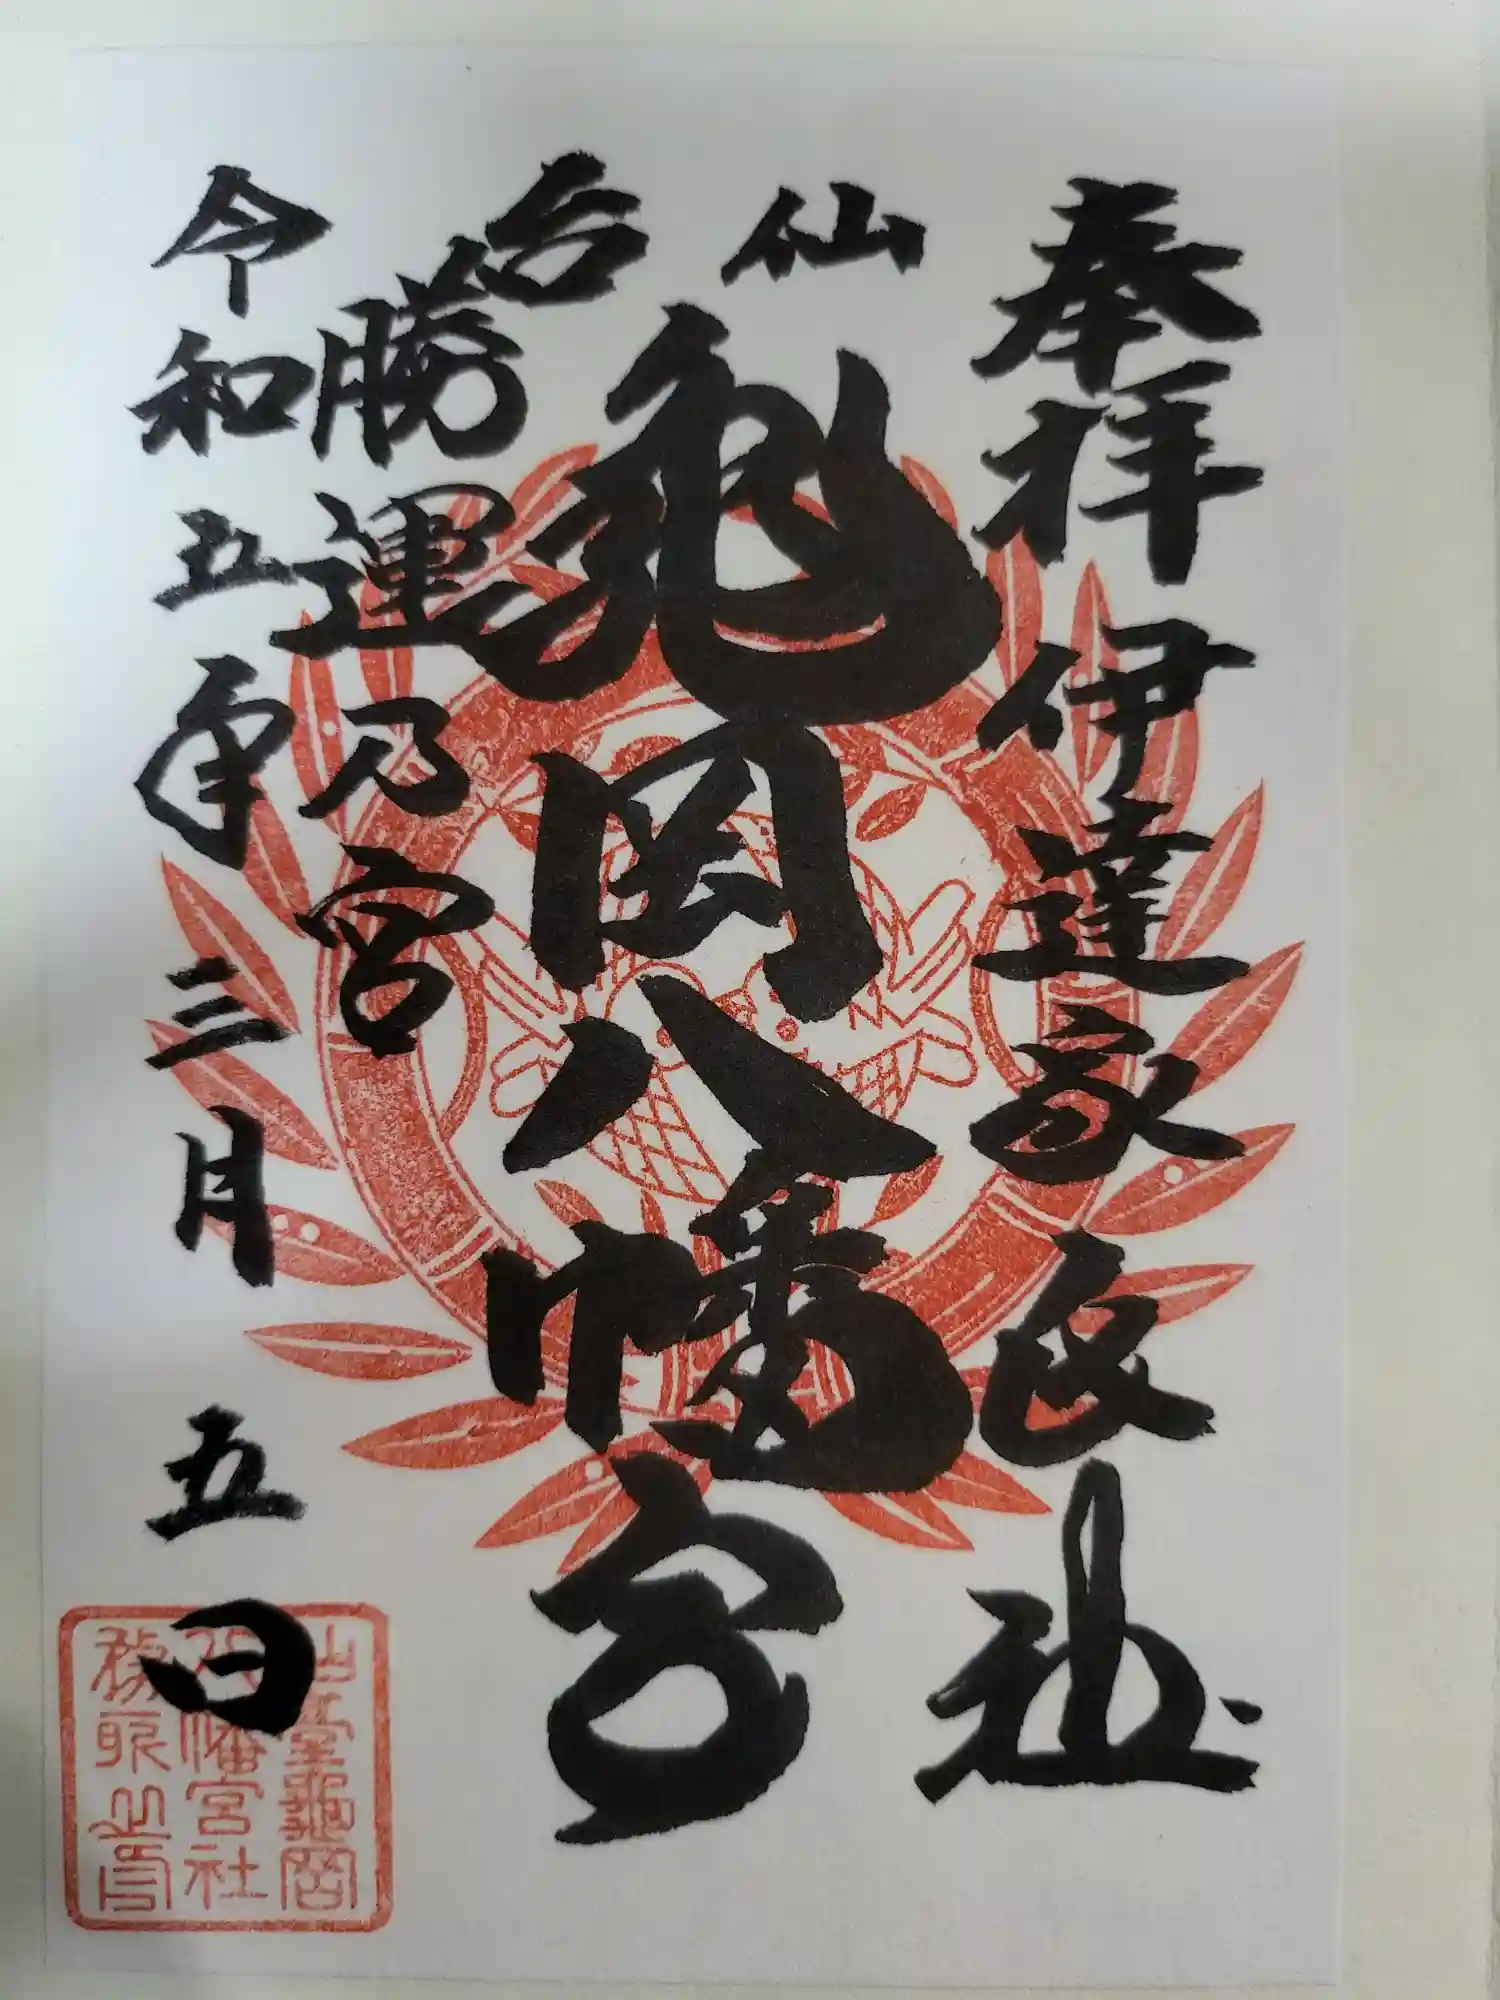 奉拝 伊達家
仙台
亀岡八幡宮
勝運乃宮
令和五年三月五日
仙臺龜岡
八幡宮社
務所之印